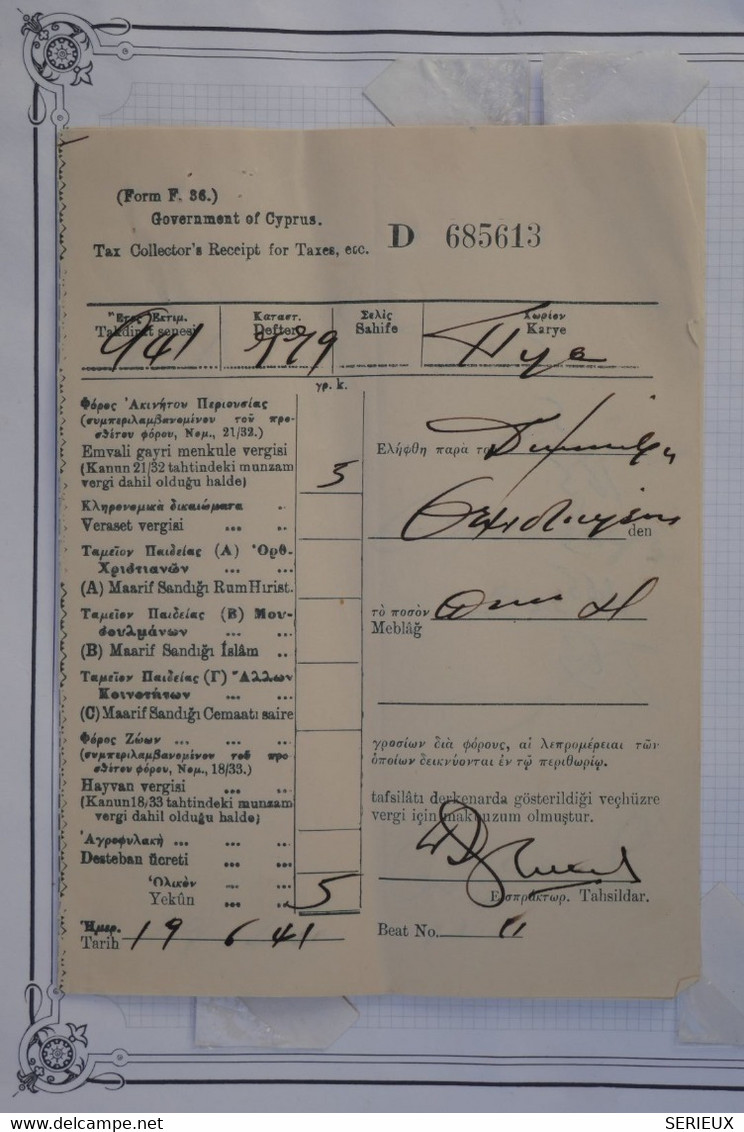 (Form F. 36.)
Government of Cyprus.
Tax Collector's Receipt for Taxes, etc. D 685613
Ἔτος Ἐκτιμ. Καταστ. Σελὶς Χωρίον
Takdirat senesi Defter Sahife Karye
941 179
γρ. κ.
Φόρος Ἀκινήτου Περιουσίας
(συμπεριλαμβανομένου τοῦ προ-
σθέτου φόρου, Νομ., 21/32.)
Emvali gayri menkule vergisi
(Kanun 21/32 tahtindeki munzam
vergi dahil olduğu halde) 5
Κληρονομικὰ δικαιώματα ..
Veraset vergisi ... ..
Ταμεῖον Παιδείας (Α) Ὀρθ.
Χριστιανῶν ... ...
(A) Maarif Sandiği Rum Hırist.
Ταμεῖον Παιδείας (Β) Μου-
σουλμάνων ... ...
(B) Maarif Sandiği İslâm ..
Ταμεῖον Παιδείας (Γ) Ἄλλων
Κοινοτήτων ... ...
(C) Maarif Sandiği Cemaati saire
Φόρος Ζώων ... ... ...
(συμπεριλαμβανομένου τοῦ προ-
σθέτου φόρου, Νομ., 18/33.)
Hayvan vergisi ... ..
(Kanun 18/33 tahtindeki munzam
vergi dahil olduğu halde)
Ἀγροφυλακὴ ... ... ...
Desteban ücreti ... ...
Ὁλικὸν ... ...
Yekûn ... .. 5
Ἡμερ.
Tarih 19 6 41
Ἐλήφθη παρὰ το
den
τὸ ποσὸν
Meblâğ
γροσίων διὰ φόρους, αἱ λεπρομέρειαι τῶν
ὁποίων δεικνύονται ἐν τῷ περιθωρίῳ.
tafsilâti derkenarda gösterildiği veçhüzre
vergi için makbuzum olmuştur.
Εἰσπράκτωρ. Tahsildar.
Beat No. 11
delcampe.net
SERIEUX